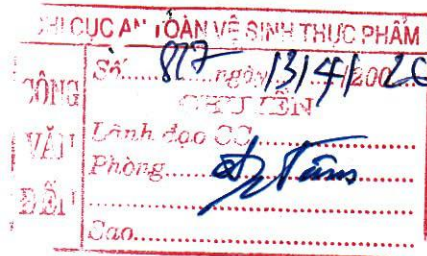 CHI CỤC AN TOÀN VỆ SINH THỰC PHẨM
CÔNG VĂN ĐẾN
Số 817 ngày 13/4/200 20
CHUYỂN
Lãnh đạo CC
Phòng
Sao